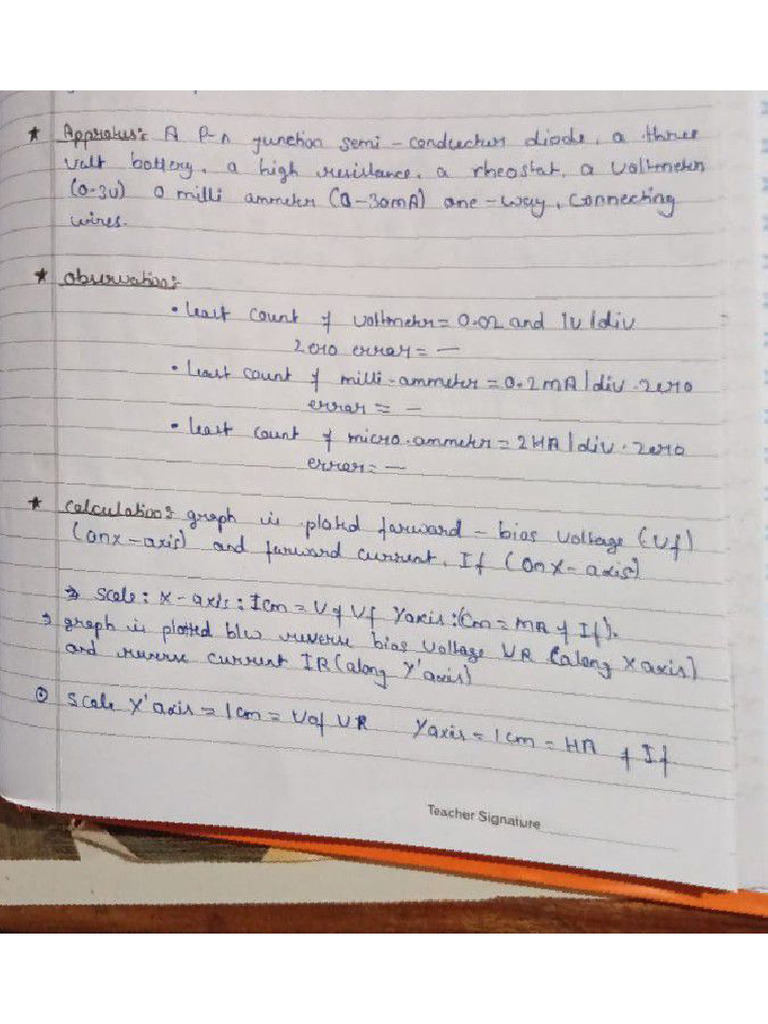 * Appratus:- A P-n junction semi-conductor diode, a three
valt battery, a high resistance, a rheostat, a voltmeter
(0-3v) a milli ammeter (0-30mA) one-way, connecting
wires.
* Observation:-
• least count of voltmeter = 0.02 and 1v/div
zero error = —
• least count of milli-ammeter = 0.2mA/div. zero
error = —
• least count of micro-ammeter = 2HA/div. zero
error = —
* Calculation:- graph is ploted forward-bias voltage (Vf)
(onx-axis) and forward current, If (on X-axis)
⇒ scale: x-axis: 1cm = V of Vf Yaxis: (cm = MA of If).
⇒ graph is plotted blw reverse bias voltage VR (along X axis)
and reverse current IR (along Y'axis)
① scale X'axis = 1cm = V of VR Yaxis = 1cm = HA of If
Teacher Signature